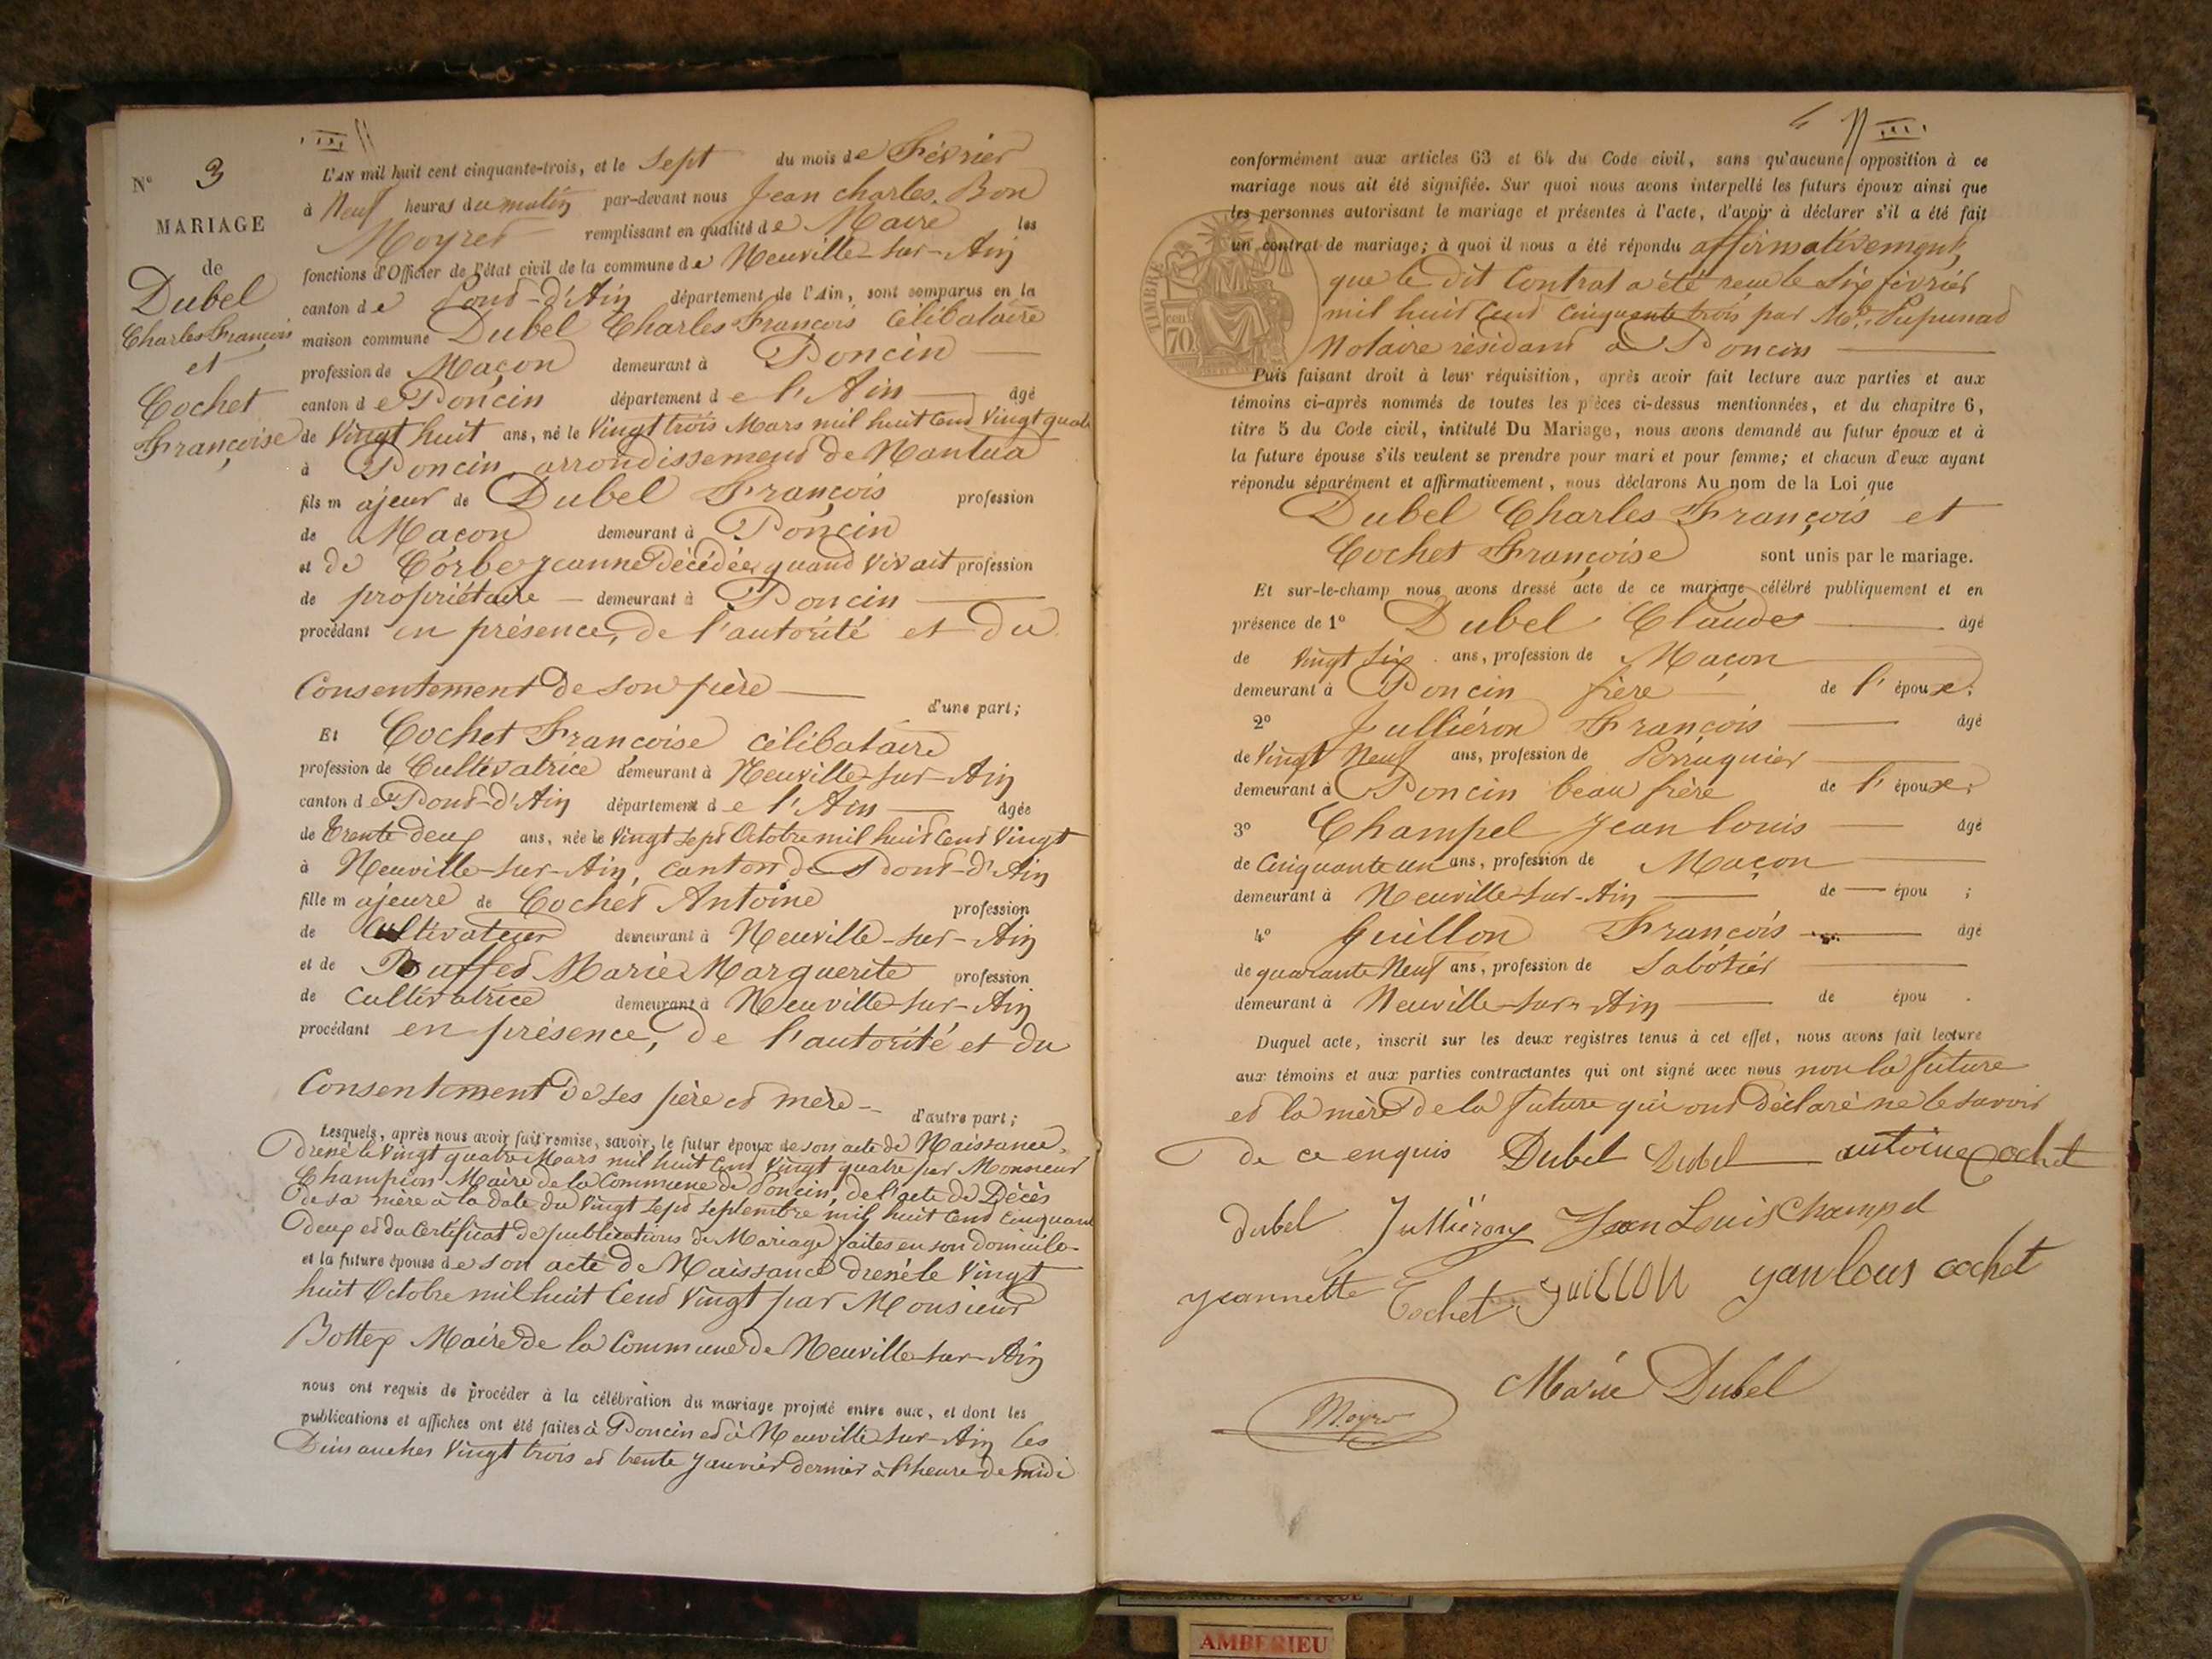 N° 3
MARIAGE
de
Dubel
Charles François
et
Cochet
Françoise
L'AN mil huit cent cinquante-trois, et le sept du mois de Février
à Neuf heures du matin par-devant nous Jean charles Bon
Moyret remplissant en qualité de Maire les
fonctions d'Officier de l'état civil de la commune de Neuville-sur-Ain
canton de Pont-d'Ain département de l'Ain, sont comparus en la
maison commune Dubel Charles François célibataire
profession de Maçon demeurant à Poncin
canton de Poncin département de l'Ain âgé
de Vingt huit ans, né le Vingt trois Mars mil huit Cent Vingt quatre
à Poncin, arrondissement de Nantua
fils majeur de Dubel François profession
de Maçon demeurant à Poncin
et de Corbe jeanne Décédée, quand vivait profession
de propriétaire demeurant à Poncin
procédant en présence, de l'autorité et du
Consentement de son père
d'une part;
Et Cochet Françoise célibataire
profession de Cultivatrice demeurant à Neuville-sur-Ain
canton de Pont-d'Ain département de l'Ain âgée
de Trente deux ans, née le Vingt sept Octobre mil huit Cent Vingt
à Neuville-sur-Ain, canton de Pont-d'Ain
fille majeure de Cochet Antoine profession
de Cultivateur demeurant à Neuville-sur-Ain
et de Buffet Marie Marguerite profession
de Cultivatrice demeurant à Neuville-sur-Ain
procédant en présence, de l'autorité et du
Consentement de ses père et mère
d'autre part;
Lesquels, après nous avoir fait remise, savoir, le futur époux de son acte de Naissance,
dressé le Vingt quatre Mars mil huit Cent Vingt quatre par Monsieur
Champion Maire de la Commune de Poncin, de l'acte de Décès
de sa mère à la date du Vingt sept septembre mil huit Cent Cinquante
Deux et du Certificat de publications de Mariage faites en son domicile
et la future épouse de son acte de Naissance dressé le Vingt
huit Octobre mil huit Cent Vingt par Monsieur
Bottex Maire de la Commune de Neuville-sur-Ain
nous ont requis de procéder à la célébration du mariage projeté entre eux, et dont les
publications et affiches ont été faites à Poncin et à Neuville-sur-Ain les
Dimanches Vingt trois et trente Janvier dernier à l'heure de midi
conformément aux articles 63 et 64 du Code civil, sans qu'aucune opposition à ce
mariage nous ait été signifiée. Sur quoi nous avons interpellé les futurs époux ainsi que
les personnes autorisant le mariage et présentes à l'acte, d'avoir à déclarer s'il a été fait
un contrat de mariage; à quoi il nous a été répondu affirmativement,
que le dit Contrat a été reçu le six février
mil huit Cent Cinquante trois par Me Pupunat
Notaire résidant à Poncin
TIMBRE
cent
70
Puis faisant droit à leur réquisition, après avoir fait lecture aux parties et aux
témoins ci-après nommés de toutes les pièces ci-dessus mentionnées, et du chapitre 6,
titre 5 du Code civil, intitulé Du Mariage, nous avons demandé au futur époux et à
la future épouse s'ils veulent se prendre pour mari et pour femme; et chacun d'eux ayant
répondu séparément et affirmativement, nous déclarons Au nom de la Loi que
Dubel Charles François et
Cochet Françoise sont unis par le mariage.
Et sur-le-champ nous avons dressé acte de ce mariage célébré publiquement et en
présence de 1° Dubel Claude âgé
de Vingt six ans, profession de Maçon
demeurant à Poncin frère de l'époux;
2° Julliéron François âgé
de Vingt Neuf ans, profession de Perruquier
demeurant à Poncin beau frère de l'époux;
3° Champel Jean louis âgé
de Cinquante un ans, profession de Maçon
demeurant à Neuville-sur-Ain de épou ;
4° Guillon François âgé
de quarante Neuf ans, profession de Sabotier
demeurant à Neuville-sur-Ain de épou .
Duquel acte, inscrit sur les deux registres tenus à cet effet, nous avons fait lecture
aux témoins et aux parties contractantes qui ont signé avec nous non la future
et la mère de la future qui ont Déclaré ne le savoir
De ce enquis Dubel Dubel antoine Cochet
dubel Julliérony Jean Louis Champel
yeannette Cochet guiLLON yan lous cochet
Marie Dubel
Moyret
AMBERIEU